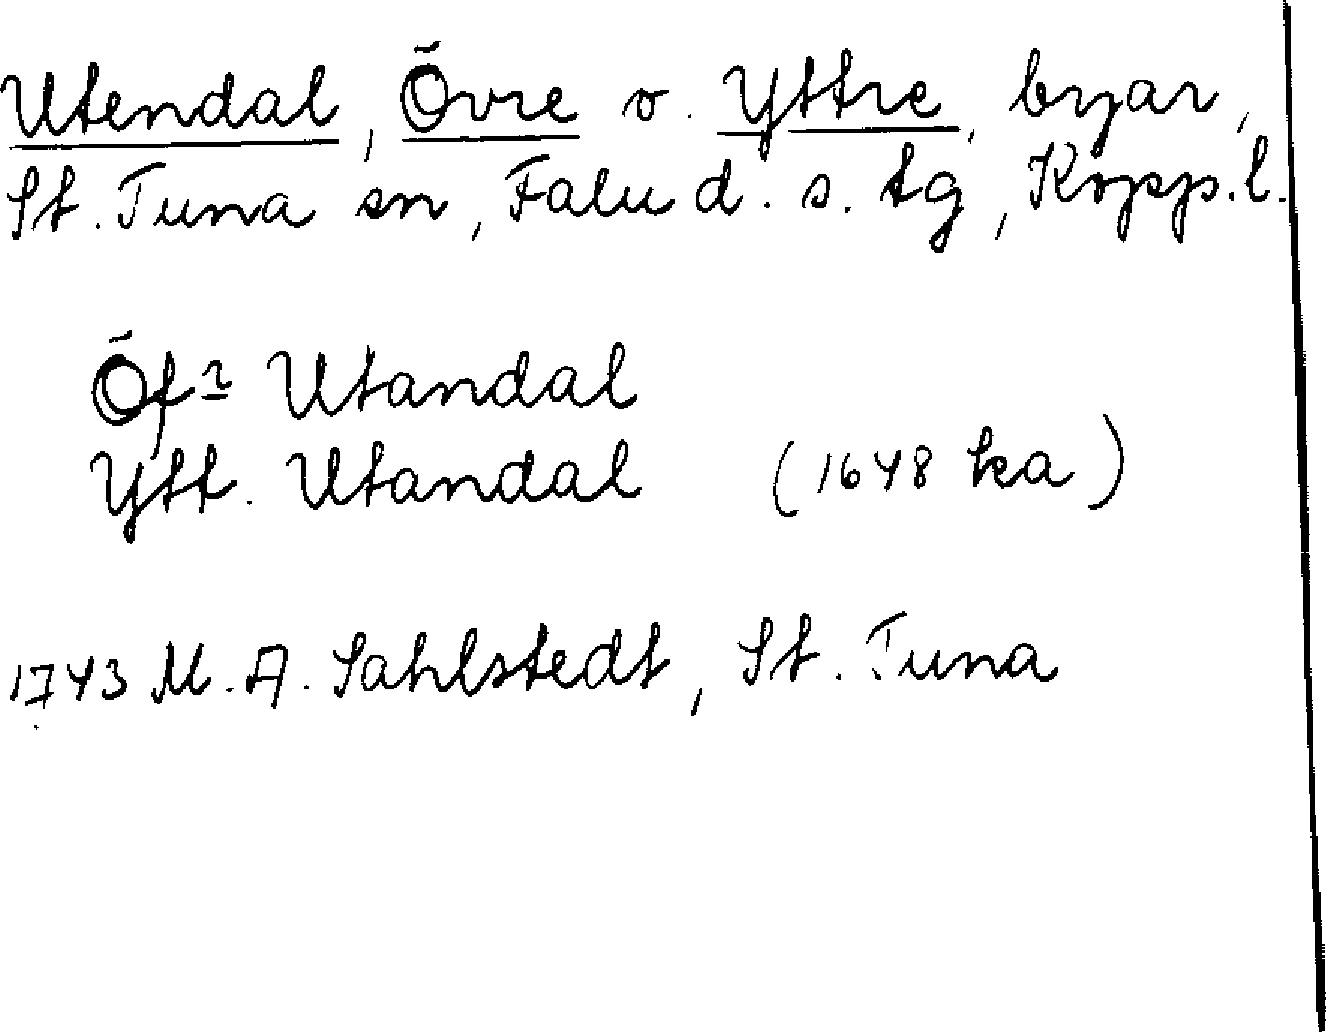 Utendal, Övre o. Yttre, byar,
St. Tuna sn, Falu d. s. tg, Kopp. l.
Öfr Utandal
Ytt. Utandal (1648 ka)
1743 M. A. Sahlstedt, St. Tuna